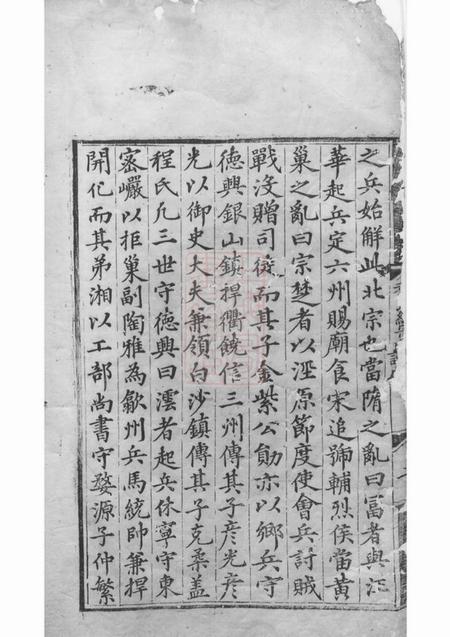 之兵始解此北宗也當隋之亂曰富者與汪
華起兵定六州賜廟食宋追號輔烈侯當黃
巢之亂曰宗楚者以涇原節度使會兵討賊
戰沒贈司徒而其子金紫公勛亦以鄉兵守
德興銀山鎮捍衢饒信三州傳其子彥光彥
光以御史大夫兼領白沙鎮傳其子克柔蓋
程氏凡三世守德興曰澐者起兵休寧守東
密巖以拒巢副陶雅為歙州兵馬統帥兼捍
開化而其弟湘以工部尚書守婺源子仲繁